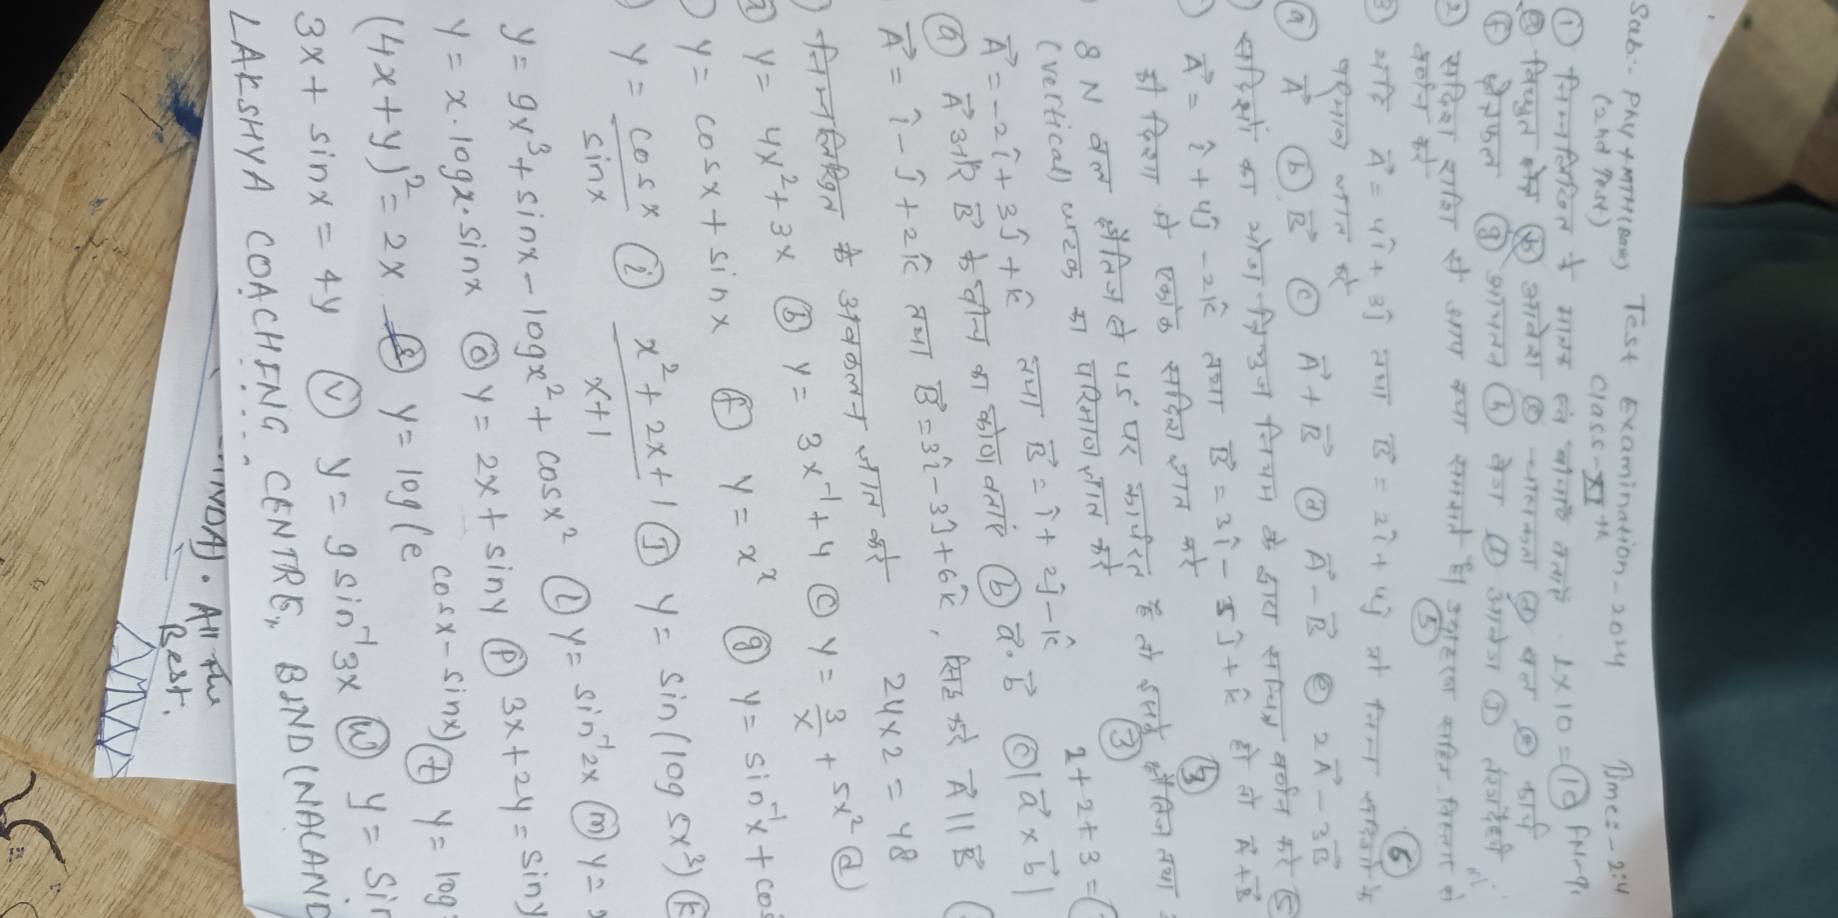 Sub:- PHY + MTH (Basic) Test Examination-2024 Time:- 2:4
(2nd Test) Class-XIth
① निम्नलिखित के मात्रक एवं बीमाएँ बनाएँ . 1×10 = ⑩ FM-9
विद्युत क्षेत्र ⓑ आवेश ⓒ ⓓ बल ⓔ कार्य
ⓕ क्षेत्रफल ⓖ आयतन ⓗ वेग ⓘ आवेग ⓙ
② सदिश राशि से आप क्या समझते हैं। उदाहरण सहित विस्तार से
वर्णन करें ⑤
③ यदि A⃗ = 4î + 3ĵ तथा B⃗ = 2î + 4ĵ तो निम्न सदिशों के
परिमाण ज्ञात करें ⑥
ⓐ A⃗ ⓑ B⃗ ⓒ A⃗ + B⃗ ⓓ A⃗ - B⃗ ⓔ 2A⃗ - 3B⃗
सदिशों का योग त्रिभुज नियम के द्वारा सचित्र वर्णन करें ⑤
A⃗ = î + 4ĵ - 2k̂ तथा B⃗ = 3î - 5ĵ + k̂ हो तो A⃗ + B⃗
की दिशा में एकांक सदिश ज्ञात करें ③
8 N बल क्षैतिज से 45° पर कार्यरत है तो इसके क्षैतिज तथा
(vertical) घटक का परिमाण ज्ञात करें ③
A⃗ = -2î + 3ĵ + k̂ तथा B⃗ = î + 2ĵ - k̂ 2+2+3 =
ⓐ A⃗ और B⃗ के बीच का कोण बताएं ⓑ a⃗.b⃗ ⓒ |a⃗ × b⃗|
A⃗ = î - ĵ + 2k̂ तथा B⃗ = 3î - 3ĵ + 6k̂ , सिद्ध करें A⃗ || B⃗
निम्नलिखित के अवकलन ज्ञात करें 24×2 = 48
y = 4x² + 3x ⓑ y = 3x⁻¹ + 4 ⓒ y = 3/x + 5x² ⓓ
y = cosx + sinx ⓕ y = xˣ ⓖ y = sin⁻¹x + cos
y = cosx/sinx ⓘ x² + 2x + 1/x+1 ⓙ y = sin(log 5x³) ⓚ
y = 9x³ + sinx - logx² + cosx² ⓛ y = sin⁻¹2x ⓜ y =
y = x.logx.sinx ⓞ y = 2x + siny ⓟ 3x + 2y = siny
(4x+y)² = 2x ⓢ y = log(e cosx - sinx) ⓣ y = log
3x + sinx = 4y ⓥ y = 9 sin⁻¹3x ⓦ y = sin
LAKSHYA COACHING CENTRE, BIND (NALAND
INDA). All the
Best.